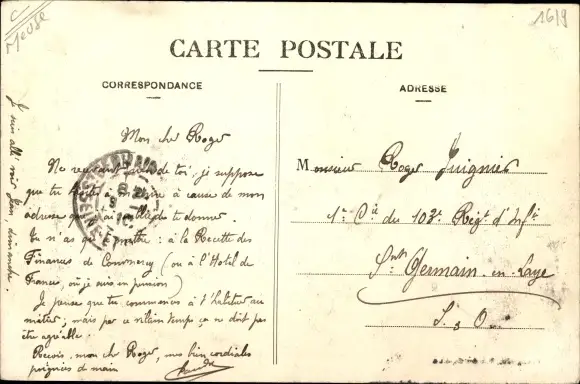 C
Meuse
1619
CARTE POSTALE
CORRESPONDANCE
ADRESSE
Mon cher Roger
Ne recevant rien de toi, je suppose
que tu hésites à m'écrire à cause de mon
adresse que j'ai oublié de te donner.
Tu n'as qu'à mettre : à la Recette des
Finances de Commercy (ou à l'Hotel de
France, où je suis en pension)
Je pense que tu commences à t'habituer au
métier; mais par ce vilain temps ça ne doit pas
être agréable.
Reçois, mon cher Roger, mes bien cordiales
poignées de main
Je suis allé voir Jean dimanche.
Monsieur Roger Guignier
1re Cie du 103e Régt d'Infie
St Germain-en-Laye
S. & O.